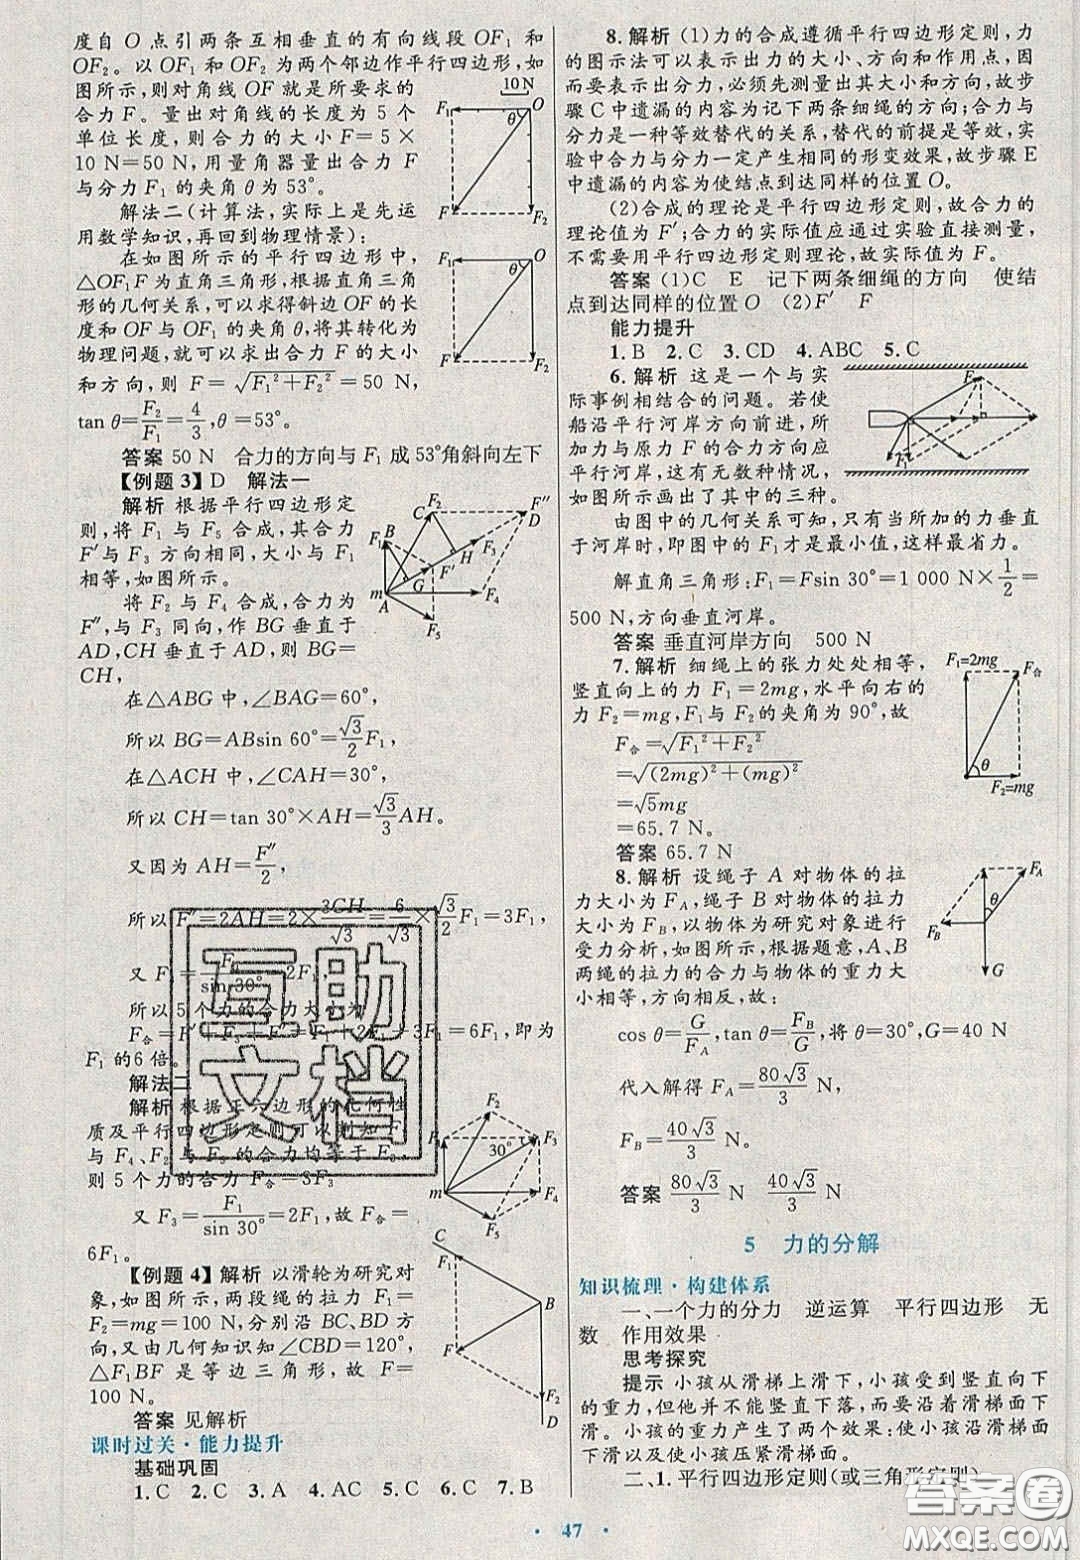 度自 O 点引两条互相垂直的有向线段 OF₁ 和
OF₂。以 OF₁ 和 OF₂ 为两个邻边作平行四边形,如
图所示,则对角线 OF 就是所要求的
合力 F。量出对角线的长度为 5 个
单位长度,则合力的大小 F=5×
10 N=50 N,用量角器量出合力 F
与分力 F₁ 的夹角 θ 为 53°。
解法二(计算法,实际上是先运
用数学知识,再回到物理情景):
在如图所示的平行四边形中,
△OF₁F 为直角三角形,根据直角三角
形的几何关系,可以求得斜边 OF 的长
度和 OF 与 OF₁ 的夹角 θ,将其转化为
物理问题,就可以求出合力 F 的大小
和方向,则 F=√(F₁²+F₂²)=50 N,
tan θ=F₂/F₁=4/3,θ=53°。
答案 50 N 合力的方向与 F₁ 成 53°角斜向左下
【例题 3】D 解法一
解析 根据平行四边形定
则,将 F₁ 与 F₅ 合成,其合力
F′与 F₃ 方向相同,大小与 F₁
相等,如图所示。
将 F₂ 与 F₄ 合成,合力为
F″,与 F₃ 同向,作 BG 垂直于
AD,CH 垂直于 AD,则 BG∥
CH,
在△ABG 中,∠BAG=60°,
所以 BG=ABsin 60°=√3/2 F₁,
在△ACH 中,∠CAH=30°,
所以 CH=tan 30°×AH=√3/3 AH。
又因为 AH=F″/2,
所以 F″=2AH=2×3CH/√3=6/√3×√3/2 F₁=3F₁,
又 F₃=F₁/sin 30°=2F₁,
所以 5 个力的合力大小为
F合=F′+F₃+F″=F₁+2F₁+3F₁=6F₁,即为
F₁ 的6倍。
解法二
解析 根据正六边形的几何性
质及平行四边形定则可以则知 F₁
与 F₄、F₂ 与 F₅ 的合力均等于 F₃,
则 5 个力的合力 F合=3F₃
又 F₃=F₁/sin 30°=2F₁,故 F合=
6F₁。
【例题 4】解析 以滑轮为研究对
象,如图所示,两段绳的拉力 F₁=
F₂=mg=100 N,分别沿 BC、BD 方
向,又由几何知识知∠CBD=120°,
△F₁BF 是等边三角形,故 F=
100 N。
答案 见解析
课时过关·能力提升
基础巩固
1.C 2.C 3.A 4.AC 5.C 6.C 7.B
10 N
F₁ O
θ
F F₂
F₁ O
θ
F F₂
F₂ C F″
D
F₁ B F₃
H
F′
G
m A F₄
F₅
F₂
F₁ F₃
30°
m F₄
F₅
C
F₁
B
F
F₂
D
8.解析 (1)力的合成遵循平行四边形定则,力
的图示法可以表示出力的大小、方向和作用点,因
而要表示出分力,必须先测量出其大小和方向,故步
骤 C 中遗漏的内容为记下两条细绳的方向;合力与
分力是一种等效替代的关系,替代的前提是等效,实
验中合力与分力一定产生相同的形变效果,故步骤 E
中遗漏的内容为使结点到达同样的位置 O。
(2)合成的理论是平行四边形定则,故合力的
理论值为 F′;合力的实际值应通过实验直接测量,
不需要用平行四边形定则理论,故实际值为 F。
答案 (1)C E 记下两条细绳的方向 使结
点到达同样的位置 O (2)F′ F
能力提升
1.B 2.C 3.CD 4.ABC 5.C
6.解析 这是一个与实
际事例相结合的问题。若使
船沿平行河岸方向前进,所
加力与原力 F 的合力方向应
平行河岸,这有无数种情况,
如图所示画出了其中的三种。
由图中的几何关系可知,只有当所加的力垂直
于河岸时,即图中的 F₁才是最小值,这样最省力。
解直角三角形:F₁=Fsin 30°=1 000 N×1/2=
500 N,方向垂直河岸。
答案 垂直河岸方向 500 N
7.解析 细绳上的张力处处相等,
竖直向上的力 F₁=2mg,水平向右的
力 F₂=mg,F₁与 F₂的夹角为 90°,故
F合=√(F₁²+F₂²)
=√((2mg)²+(mg)²)
=√5mg
=65.7 N。
答案 65.7 N
8.解析 设绳子 A 对物体的拉
力大小为 F_A,绳子 B 对物体的拉力
大小为 F_B,以物体为研究对象进行
受力分析,如图所示,根据题意,A、B
两绳的拉力的合力与物体的重力大
小相等,方向相反,故:
cos θ=G/F_A,tan θ=F_B/G,将 θ=30°,G=40 N
代入解得 F_A=80√3/3 N,
F_B=40√3/3 N。
答案 80√3/3 N 40√3/3 N
5 力的分解
知识梳理·构建体系
一、一个力的分力 逆运算 平行四边形 无
数 作用效果
思考探究
提示 小孩从滑梯上滑下,小孩受到竖直向下
的重力,但是却没有竖直下落,而是沿着滑梯面下
滑。小孩的重力产生了两个效果:使小孩沿滑梯面
下滑以及使小孩压紧滑梯面。
二、1.平行四边形定则(或三角形定则)
F
F₁
F₁=2mg F合
θ
F₂=mg
F_A
θ
F_B
G
47
互助
文档
答案圈
MXQE.COM